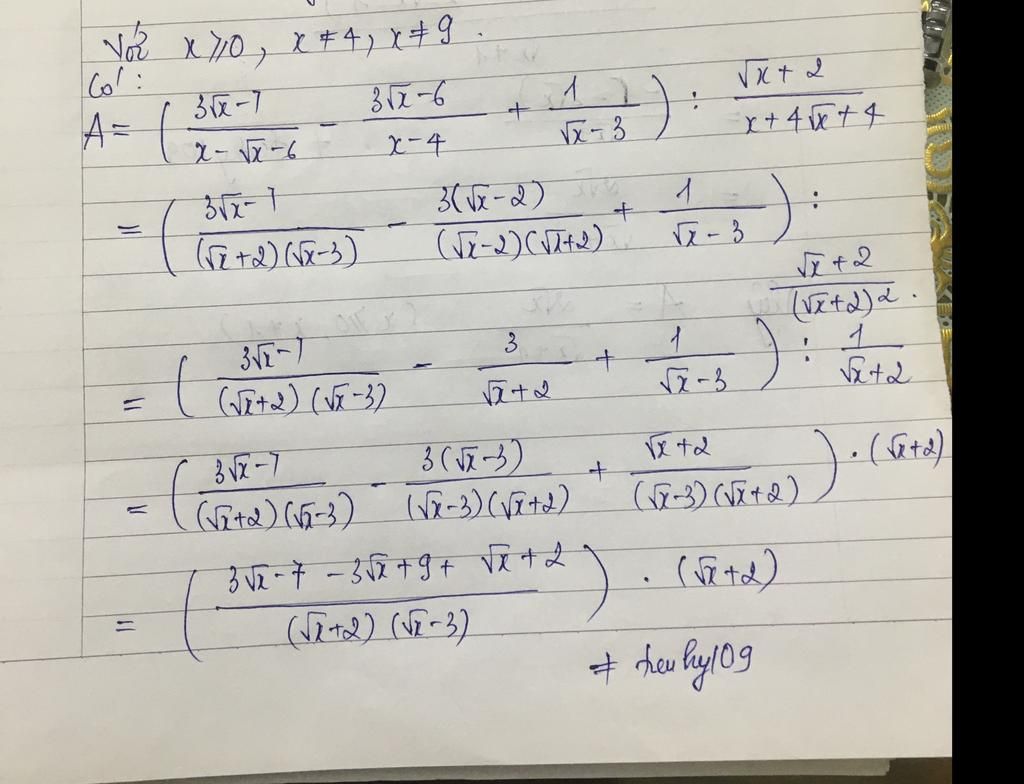 Với x ⩾ 0, x ≠ 4, x ≠ 9.
Có:
A = ( (3√x - 7)/(x - √x - 6) - (3√x - 6)/(x - 4) + 1/(√x - 3) ) : (√x + 2)/(x + 4√x + 4)
= ( (3√x - 7)/((√x + 2)(√x - 3)) - 3(√x - 2)/((√x - 2)(√x + 2)) + 1/(√x - 3) ) :
(√x + 2)/(√x + 2)².
= ( (3√x - 7)/((√x + 2)(√x - 3)) - 3/(√x + 2) + 1/(√x - 3) ) : 1/(√x + 2)
= ( (3√x - 7)/((√x + 2)(√x - 3)) - 3(√x - 3)/((√x - 3)(√x + 2)) + (√x + 2)/((√x - 3)(√x + 2)) ) . (√x + 2)
= ( (3√x - 7 - 3√x + 9 + √x + 2)/((√x + 2)(√x - 3)) ) . (√x + 2)